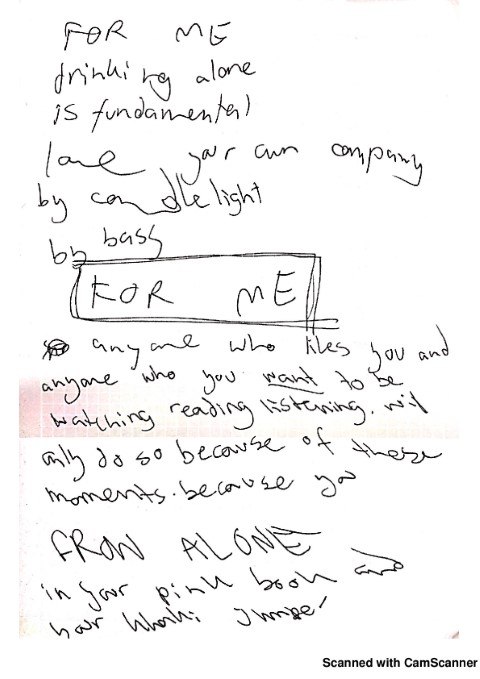 FOR ME
drinking alone
is fundamental
love your own company
by candlelight
by bass
FOR ME
anyone who likes you and
anyone who you want to be
watching reading listening. will
only do so because of these
moments. because you
ALONE
in your pink book and
your jumper
Scanned with CamScanner